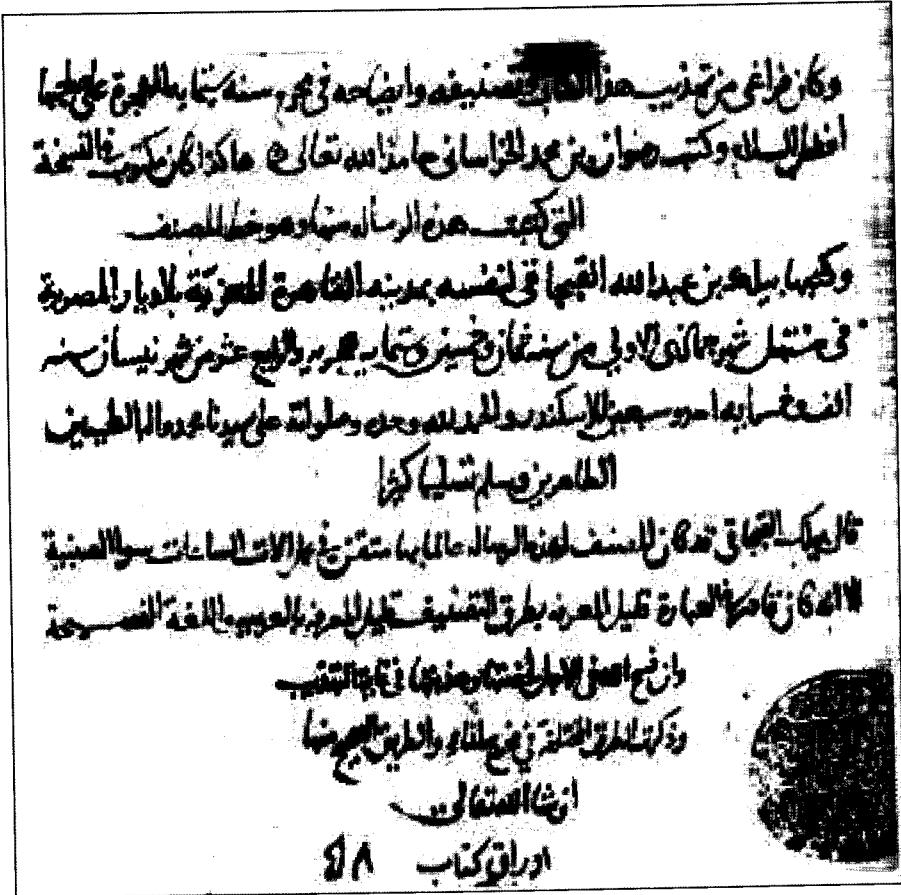 وكان فراغي من تهذيب هذا الكتاب وتصنيفه وايضاحه في محرم سنه ستمايه للهجرة على صاحبها
افضل السلام وكتب رضوان بن محمد الخراساني حامدا لله تعالى هاكذا كان مكتوب في النسخة
التي كتبت هذه الرساله منها وهو خط المصنف
وكتبها بيلك بن عبد الله القبجاقي لنفسه بمدينه القاهرة المعزية بالديار المصرية
في مستهل شهر جمادى الاولي من سنه ثمان وخمسين وستمايه هجريه والرابع عشر من شهر نيسان سنه
الف وخمسمايه احد وسبعين للاسكندر والحمد لله وحده وصلواته على سيدنا محمد واله الطيبين
الطاهرين وسلم تسليما كثيرا
قال بيلك القبجاقي قد كان المصنف لهذه الرساله عالما بها متقن في عمل الات الساعات سوا الصينية
الا انه كان قاصرا في العبارة قليل المعرفه بطرق التصنيف قليل المعرفه بالعربيه واللغة الفصيحة
وان فسح الله في الاجل وهذبتها في غاية التهذيب
وذكرت الطرق المختلفة في والطريق الصحيح منها
ان شا الله تعالى
اوراق كتاب